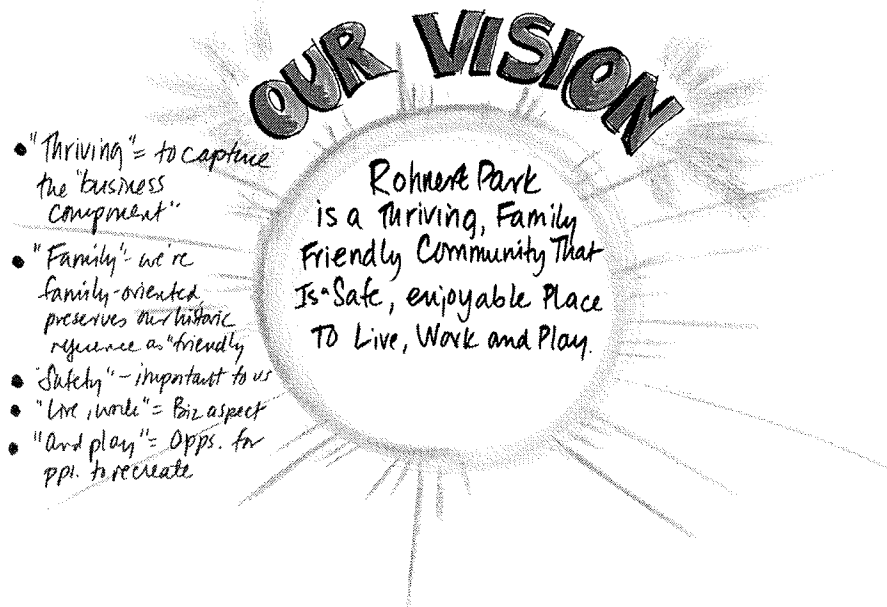 OUR VISION
• "Thriving" = to capture
the "business
component"
• "Family" - we're
family-oriented,
preserves our historic
reference as "friendly
• "Safety" - important to us
• "Live, work" = Biz aspect
• "and play" = Opps. for
ppl. to recreate
Rohnert Park
is a Thriving, Family
Friendly Community That
Is a Safe, enjoyable Place
To Live, Work and Play.